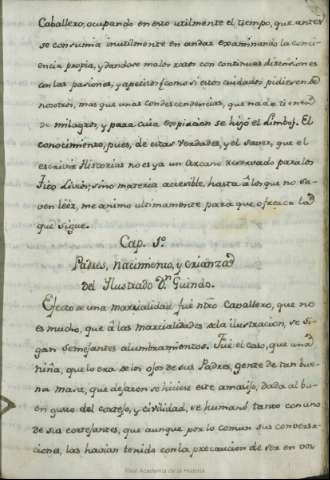 Caballero, ocupando en esto utilmente el tiempo, que antes
se consumia inutilmente en andar examinando la conci-
encia propia, y dandose malos ratos con continuas disensiones
con las pasiones, y apetitos (como si estos cuidados pidiesen de
nosotros, mas que unas condescendencias, que nada tienen
de milagros, y para cuia expiacion se hizo el Limbo). El
conocimiento, pues, de estas verdades, y el saver, que el
escrivir Historias no es ya un Arcano reservado para los
Tito Livios, sino materia accesible, hasta á los que no sa-
ven leér, me animo ultimamente para que ofrezca la
que sigue.
Cap. 1º
Padres, nacimiento, y crianza
del Ilustrado Dn. Guindo.
Efecto de una marcialidad fué ntro Caballero, que no
es mucho, que á las marcialidades de la ilustracion, se si-
gan semejantes alumbramientos. Fué el caso, que una
niña, que lo era de los ojos de sus Padres, gente de tan bue-
na masa, que dejaron se hiciese este amasijo, dada al bu-
en gusto del cortejo, y civilidad, se humanó tanto con uno
de sus cortejantes, que aunque por lo comun sus conversa-
ciones, las havian tenido con la precaucion de ser en voz
Real Academia de la Historia